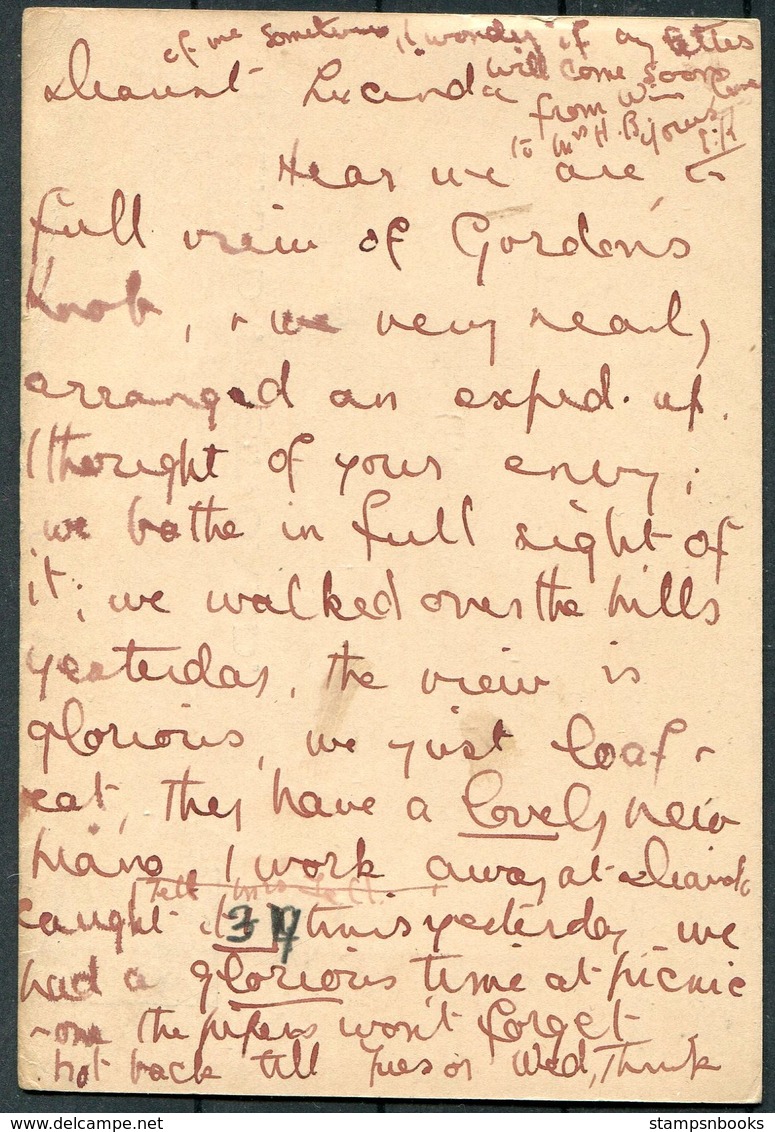 of me sometimes, I wonder if any letters
will come soon
from
to Mrs H.
Dearest Lucinda
Hear we are in
full view of Gordon's
Knob, & we very nearly
arranged an exped. up.
I thought of your envy;
we bathe in full sight of
it; we walked over the hills
yesterday, the view is
glorious, we just loaf &
eat, they have a lovely new
piano, I work away at
caught it 37 times yesterday we
had a glorious time at picnic
one the pipers won't forget
not back till Tues or Wed, Think
stampsnbooks